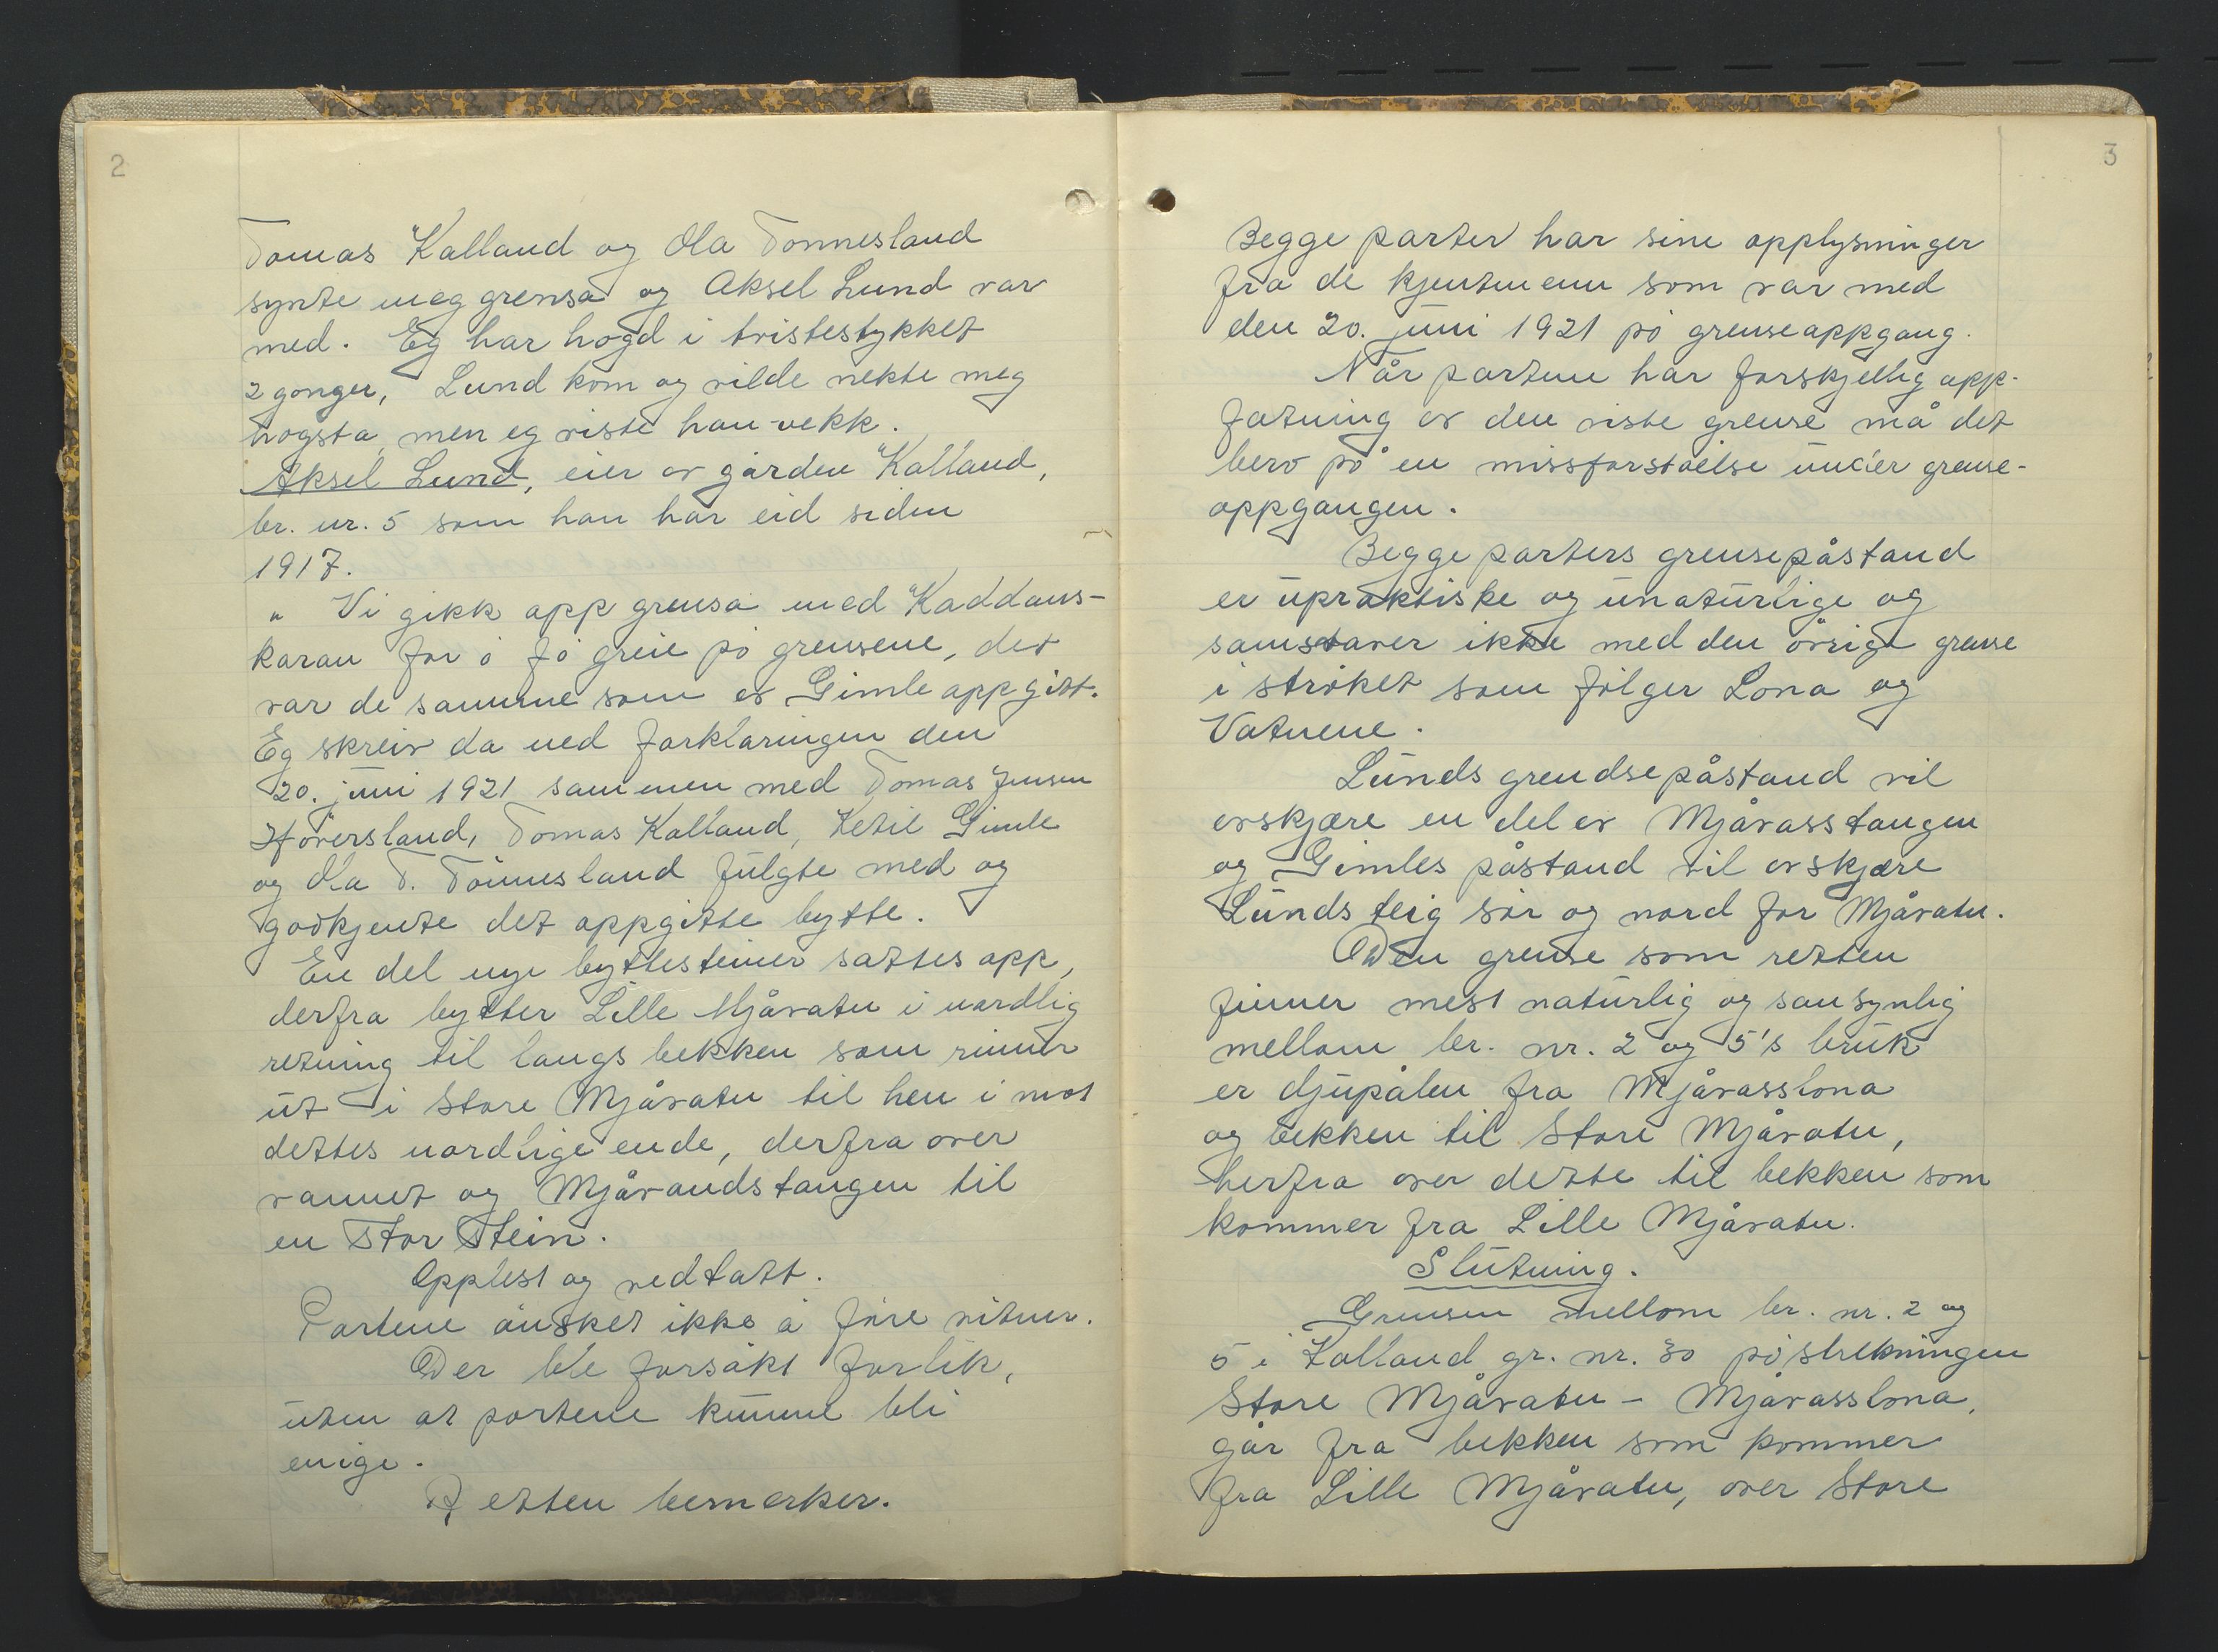 2
Tomas Kalland og Ola Tonnesland
synte meg grensa og Aksel Lund var
med. Eg har hogd i tvistestykket
2 gonger, Lund kom og vilde nekte meg
hogsta, men eg viste han vekk.
Aksel Lund, eier av gården Kalland,
br. nr. 5 som han har eid siden
1917.
" Vi gikk opp grensa med Kaddans-
karan for å få greie på grensene, det
var de samme som av Gimle oppgitt.
Eg skreiv da ned forklaringen den
20. juni 1921 sammen med Tomas Jensen
Høversland, Tomas Kalland, Ketil Gimle
og Ola T. Tönnesland fulgte med og
godkjente det oppgitte bytte.
En del nye byttesteiner sattes opp,
derfra bytter Lille Mjåvatn i nordlig
retning til langs bekken som rinner
ut i Store Mjåvatn til hen i mot
dettes nordlige ende, derfra over
vannet og Mjåvandstangen til
en stor Stein.
Opplest og vedtatt.
Partene ønsket ikke å føre vitner.
Der ble forsøkt forlik,
uten at partene kunne bli
enige.
Retten bemerker.
3
Begge parter har sine opplysninger
fra de kjentmenn som var med
den 20. juni 1921 på grenseoppgang.
Når partene har forskjellig opp-
fatning av den viste grense må det
bero på en missforståelse under grense-
oppgangen.
Begge parters grensepåstand
er upraktiske og unaturlige og
samstaver ikke med den övrige grense
i strøket som følger Lona og
Vatnene.
Lunds grendsepåstand vil
avskjære en del av Mjåvasstangen
og Gimles påstand vil avskjære
Lunds teig sør og nord for Mjåvatn.
Den grense som retten
finner mest naturlig og sansynlig
mellom br. nr. 2 og 5's bruk
er djupålen fra Mjåvasslona
og bekken til Store Mjåvatn,
herfra over dette til bekken som
kommer fra Lille Mjåvatn.
Slutning.
Grensen mellom br. nr. 2 og
5 i Kalland gr. nr. 30 på strekningen
Store Mjåvatn - Mjåvasslona,
går fra bekken som kommer
fra Lille Mjåvatn, over Store